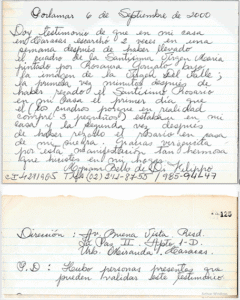 Porlamar 6 de Septiembre de 2000
Doy testimonio de que en mi casa
en Caracas escarchó 2 veces en una
semana después de haber llevado
el cuadro de la Santísima Virgen María
pintado por Rosanna
la imagen de la Virgen del Valle;
la primera vez minutos después de
haber rezado el Santísimo Rosario
en mi casa el primer día que
el cuadro (porque en realidad
compré 3 pequeños) estaban en mi
casa y la segunda vez después
de haber rezado el rosario en casa
de mi suegra. Gracias Virgencita
por esta manifestación tan hermosa
que hiciste en mi hogar
Bello de Di Filippo
125
Dirección: Av. Buena Vista Resd.
La Paz II - Apto 1-D
Urb. Miranda. Caracas.
P.D: Hubo personas presentes que
pueden validar este testimonio.